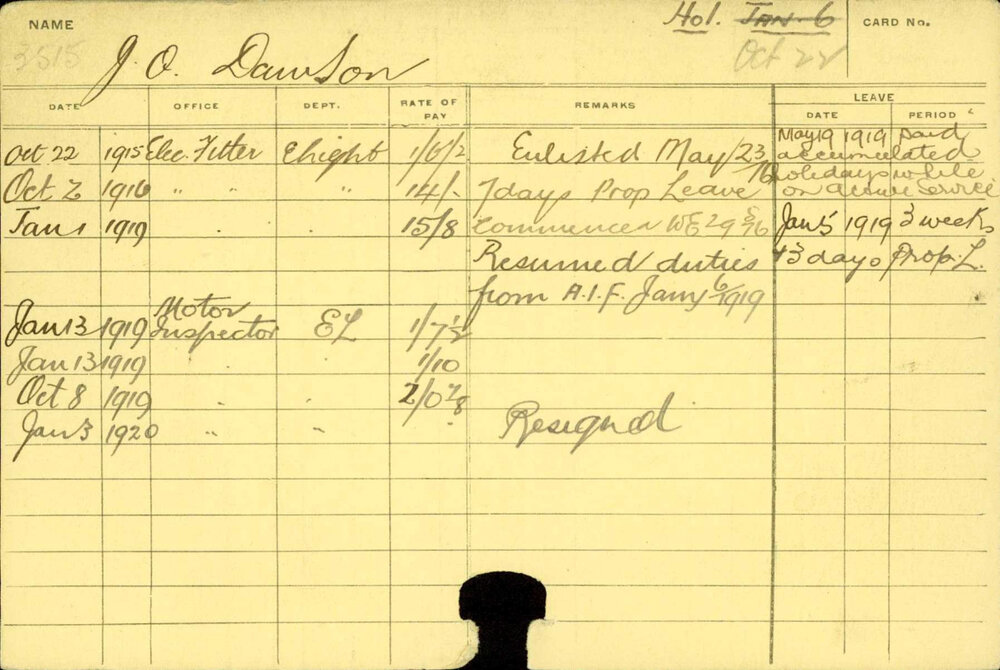 NAME
Hol. JAN. 6
CARD No.
3515
Oct 22
J. O. Dawson
DATE OFFICE DEPT. RATE OF PAY REMARKS LEAVE
DATE PERIOD
Oct 22 1915 Elec. Fitter Elight 1/6/2 Enlisted May/23/16
May 19 1919 paid
accumulated
holidays while
on active service
Oct 2 1916 " " " 14/- 7 days Prop Leave
Jan 1 1919 " " 15/8 Commenced WE 29 5/16 Jan 5 1919 3 weeks
Resumed duties +3 days Prop. L.
from A.I.F. Jany 6/1919
Jan 13 1919 Motor Inspector EL 1/7½
Jan 13 1919 " " 1/10
Oct 8 1919 " " 2/0 7/8
Jan 3 1920 " " Resigned